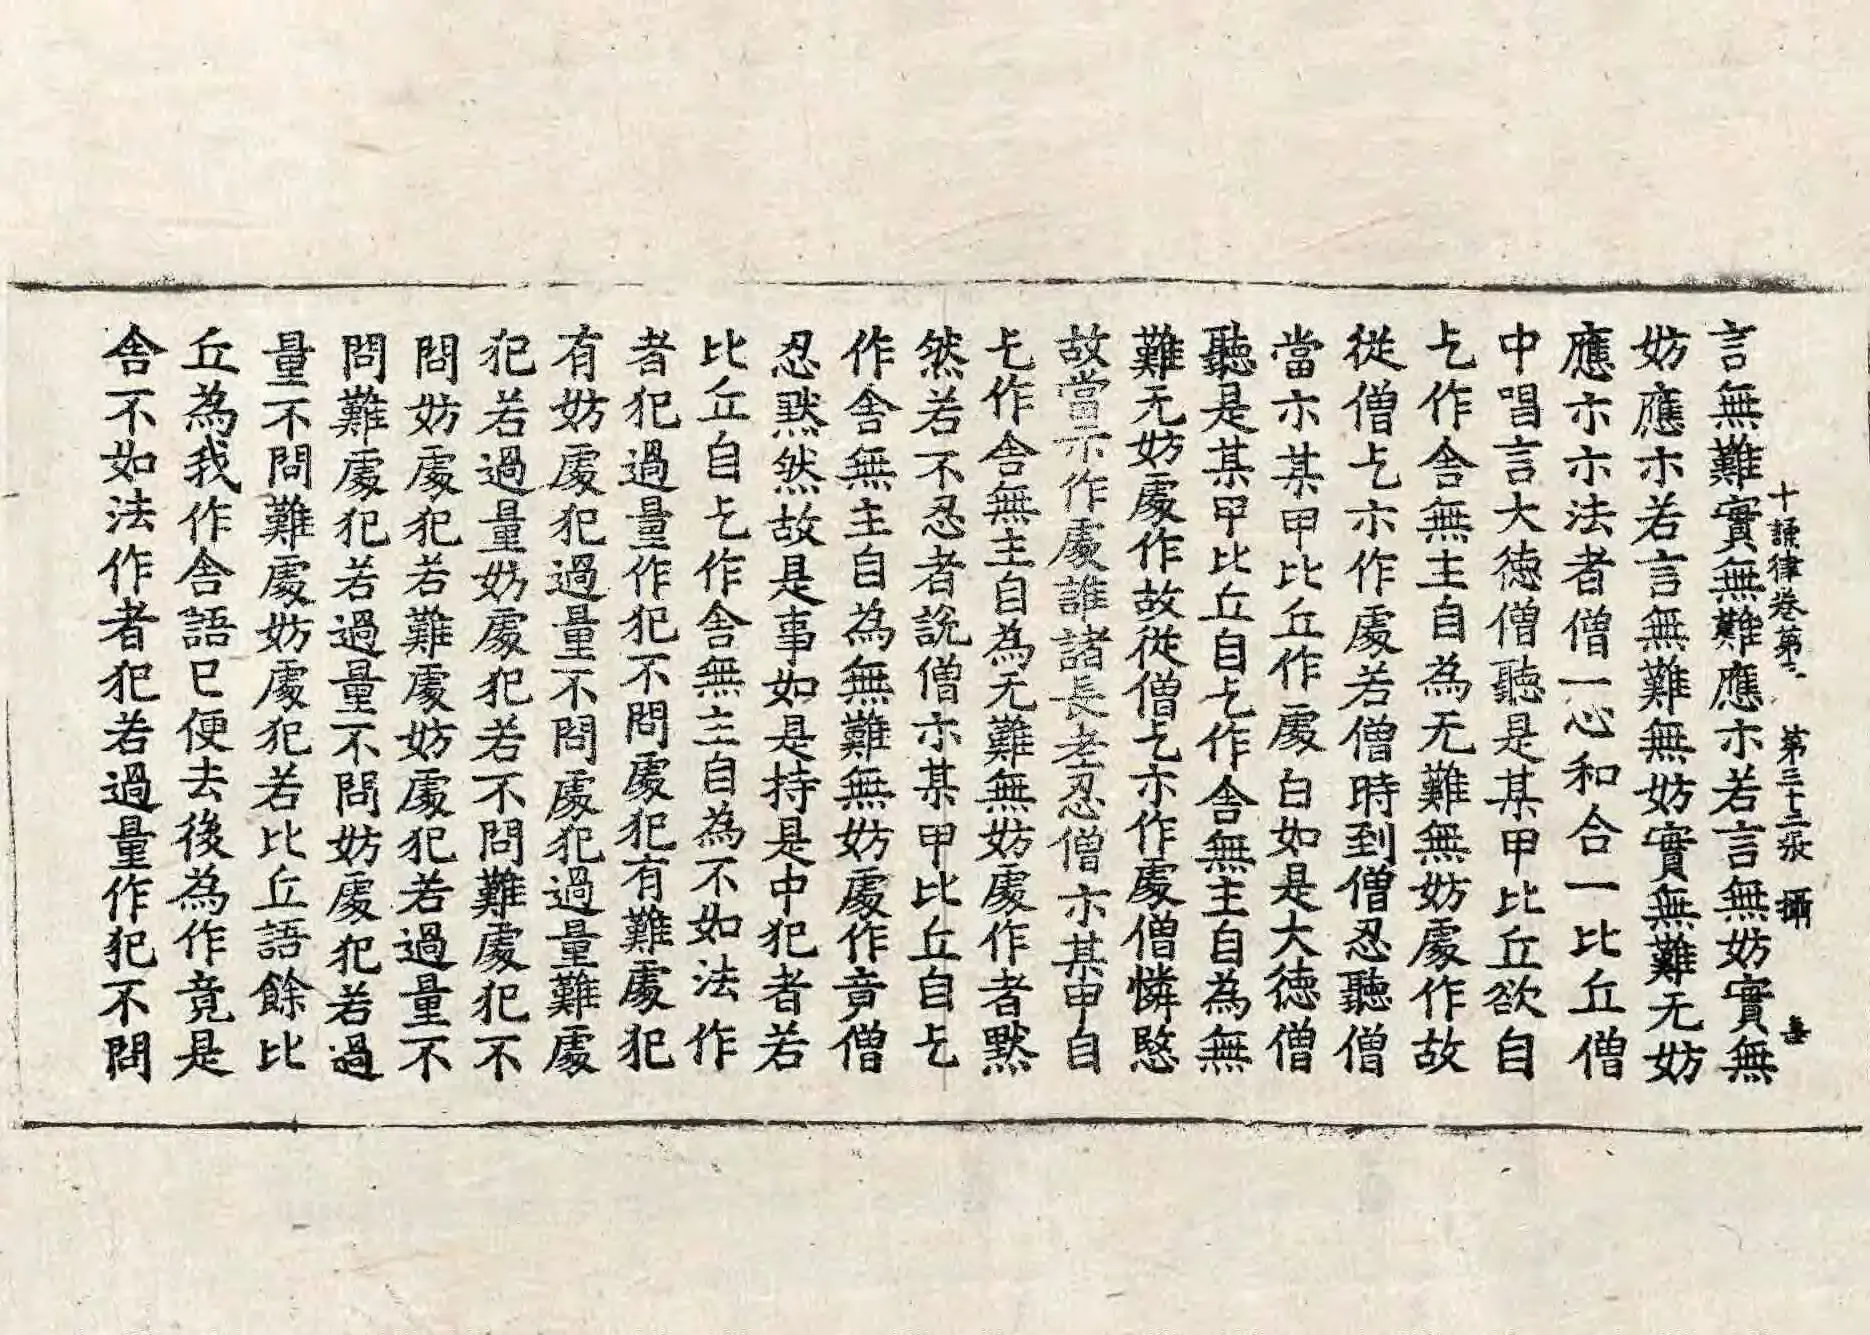 十誦律卷第 第三十三張 攝
言無難實無難應示若言無妨實無
妨應示若言無難無妨實無難无妨
應示示法者僧一心和合一比丘僧
中唱言大徳僧聽是某甲比丘欲自
乞作舍無主自為无難無妨處作故
從僧乞示作處若僧時到僧忍聽僧
當示某甲比丘作處白如是大徳僧
聽是某甲比丘自乞作舍無主自為無
難无妨處作故從僧乞示作處僧憐愍
故當示作處誰諸長老忍僧示某甲自
乞作舍無主自為无難無妨處作者默
然若不忍者說僧示某甲比丘自乞
作舍無主自為無難無妨處作竟僧
忍默然故是事如是持是中犯者若
比丘自乞作舍無主自為不如法作
者犯過量作犯不問處犯有難處犯
有妨處犯過量不問處犯過量難處
犯若過量妨處犯若不問難處犯不
問妨處犯若難處妨處犯若過量不
問難處犯若過量不問妨處犯若過
量不問難處妨處犯若比丘語餘比
丘為我作舍語已便去後為作竟是
舍不如法作者犯若過量作犯不問